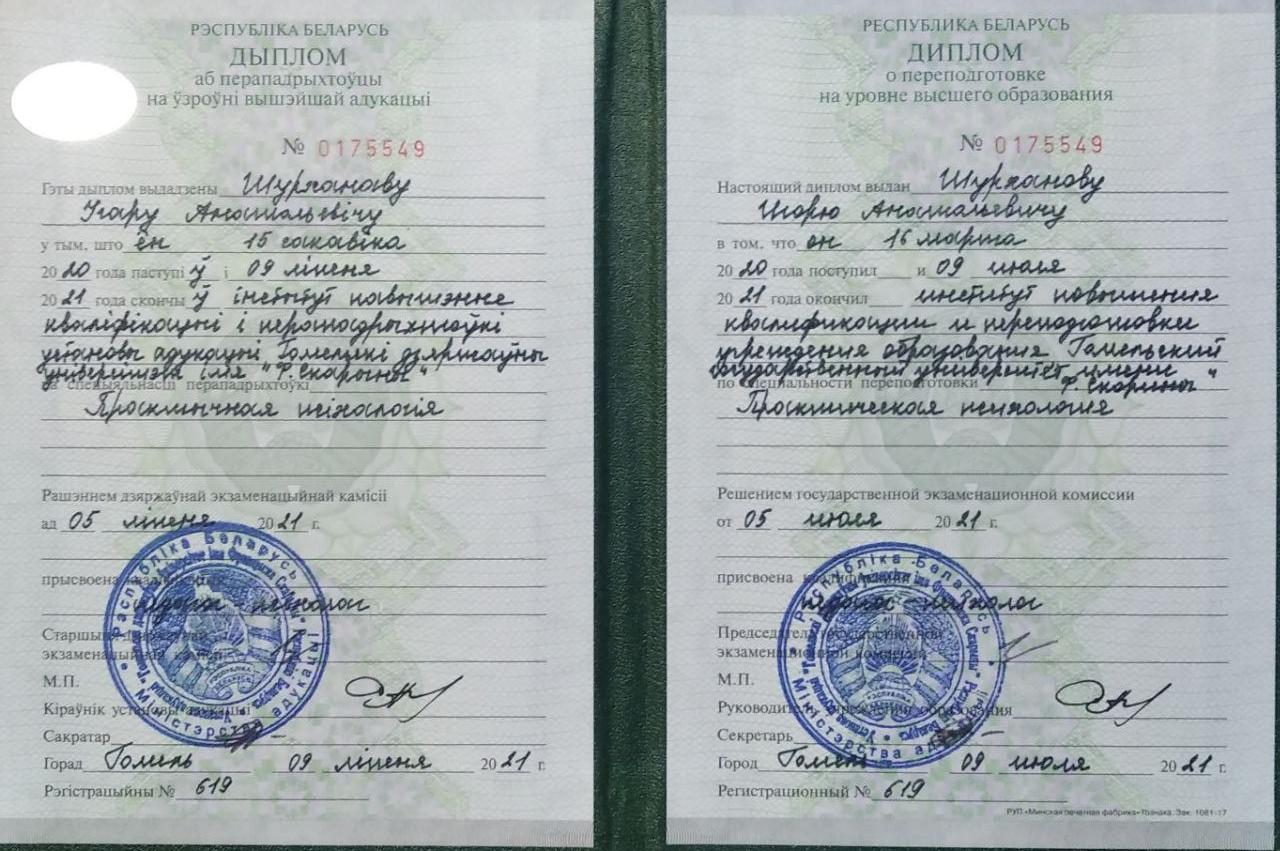 РЭСПУБЛІКА БЕЛАРУСЬ
ДЫПЛОМ
аб перападрыхтоўцы
на ўзроўні вышэйшай адукацыі
№ 0175549
Гэты дыплом выдадзены Шурханаву
Ігару Анатольевічу
у тым, што ён 15 сакавіка
2020 года паступіў і 09 ліпеня
2021 года скончыў інстытут павышэння
кваліфікацыі і перападрыхтоўкі
установы адукацыі Гомельскі дзяржаўны
універсітэт імя "Ф. Скарыны"
па спецыяльнасці перападрыхтоўкі
Практычная псіхалогія
Рашэннем дзяржаўнай экзаменацыйнай камісіі
ад 05 ліпеня 2021 г.
прысвоена кваліфікацыя
педагог-псіхолаг
Старшыня дзяржаўнай
экзаменацыйнай камісіі
М.П.
Кіраўнік установы адукацыі
Сакратар
Горад Гомель 09 ліпеня 2021 г.
Рэгістрацыйны № 619
Рэспубліка Беларусь
Міністэрства адукацыі
РЕСПУБЛИКА БЕЛАРУСЬ
ДИПЛОМ
о переподготовке
на уровне высшего образования
№ 0175549
Настоящий диплом выдан Шурханову
Игорю Анатольевичу
в том, что он 16 марта
2020 года поступил и 09 июля
2021 года окончил институт повышения
квалификации и переподготовки
учреждения образования Гомельский
государственный университет имени
Ф. Скорины"
по специальности переподготовки
Практическая психология
Решением государственной экзаменационной комиссии
от 05 июля 2021 г.
присвоена квалификация
педагог-психолог
Председатель государственной
экзаменационной комиссии
М.П.
Руководитель учреждения образования
Секретарь
Город Гомель 09 июля 2021 г.
Регистрационный № 619
Рэспубліка Беларусь
Міністэрства адукацыі
РУП «Минская печатная фабрика» Гознака. Зак. 1081-17